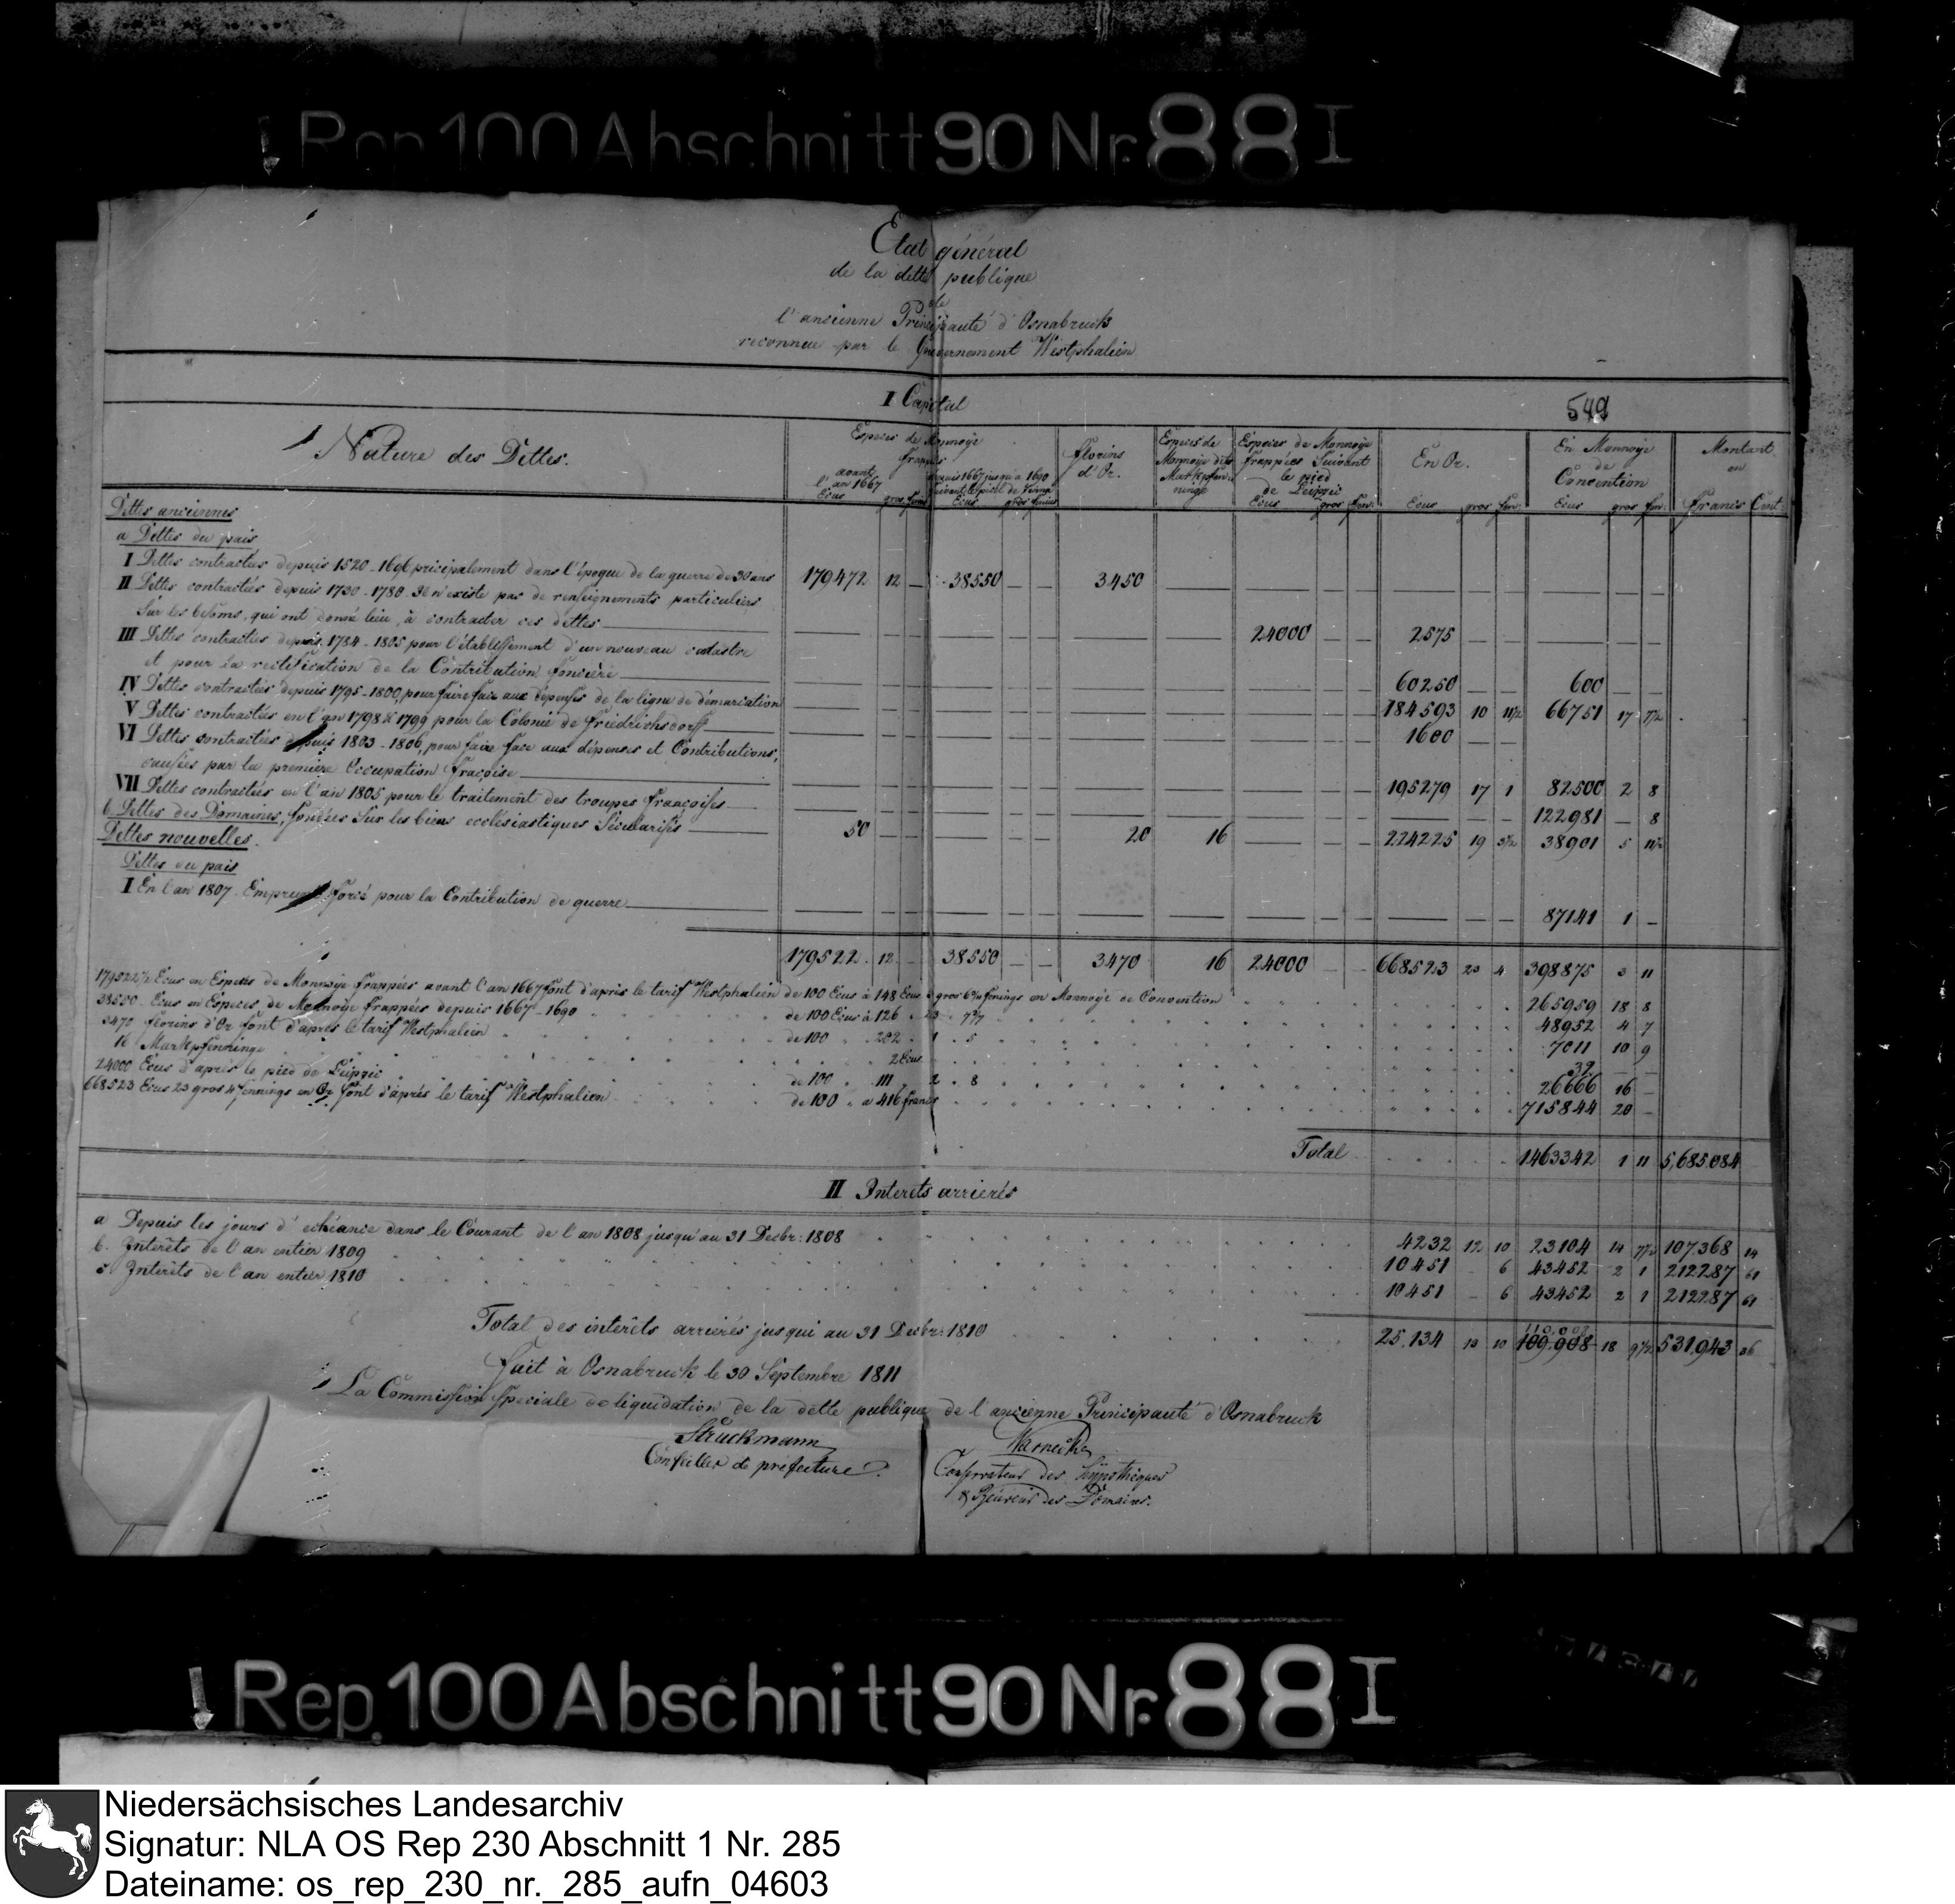 Rep 100 Abschnitt 90 Nr. 88 I
Etat général
de la dette publique
de
l'ancienne Principauté d'Osnabruck
reconnue par le Gouvernement Westphalien
I Capital
549
Nature des Dettes.
Especes de Monnoye frappés
avant l'an 1667
Ecus gros fen
depuis 1667 jusqu'à 1690
Ecus gros fen
florins d'Or.
Especes de Monnoye dites Markpfenninge
Especes de Monnoye frappées Suivant le pied de Leipzic
Ecus gros fen:
En Or.
Ecus gros fen:
En Monnoye de Convention
Ecus gros fen:
Montant en
francs Cent:
Dettes anciennes
a Dettes du pais
I Dettes contractées depuis 1520-1696 pricipalement dans l'époque de la guerre de 30 ans 179472 12 — 38550 — — 3450
II Dettes contractées depuis 1730-1780. Il n'existe pas de renseignements particuliers
Sur les besoins, qui ont donné lieu, à contracter ces dettes 24000 — — 2575 — —
III Dettes contractées depuis 1784-1805 pour l'établissement d'un nouveau cadastre
et pour la rectification de la Contribution foncière 60250 — — 600 — —
IV Dettes contractées depuis 1795-1800, pour faire face aux dépenses de la ligne de démarcation 184593 10 11½ 66751 17 7½
V Dettes contractées en l'an 1798 & 1799 pour la Colonie de Friedrichsdorff 1600 — —
VI Dettes contractées depuis 1803-1806, pour faire face aux dépenses et Contributions,
causées par la première Occupation fraçoise 195279 17 1 82500 2 8
VII Dettes contractées en l'an 1805 pour le traitement des troupes françoises 122981 — 8
b. Dettes des Domaines, fondées Sur les biens ecclésiastiques Sécularisés 50 20 16 224225 19 3½ 38901 5 11½
Dettes nouvelles.
Dettes du pais
I En l'an 1807. Emprunt forcé pour la Contribution de guerre 87141 1 —
179522 12 — 38550 — — 3470 16 24000 — — 668523 23 4 398875 3 11
179522½ Ecus en Especes de Monnoye frappées avant l'an 1667 font d'après le tarif Westphalien de 100 Ecus à 148 Ecus 3 gros fenings en Monnoye de Convention 265959 18 8
38550 Ecus en Especes de Monnoye frappées depuis 1667-1690 de 100 Ecus à 126 23 48952 4 7
3470 florins d'Or font d'après le tarif Westphalien de 100 202 1 5 7011 10 9
16 Markpfenninge 2 Ecus 32 — —
24000 Ecus d'après le pied de Leipzic de 100 111 2 8 26666 16 —
668523 Ecus 23 gros 4 fennings en Or font d'après le tarif Westphalien de 100 a 416 francs 715844 20 —
Total 1463342 1 11 5,685,084
II Interets arrierés
a Depuis les jours d'echéance dans le Courant de l'an 1808 jusqu'au 31 Decbr: 1808 4232 12 10 23104 14 7½ 107,368 14
b. Interêts de l'an entier 1809 10451 — 6 43452 2 1 212287 61
c. Interêts de l'an entier 1810 10451 — 6 43452 2 1 212287 61
Total des interêts arrierés jusqui au 31 Decbr: 1810 25.134 13 10 109,908 18 9½ 531,943 36
fait à Osnabruck le 30 Septembre 1811
La Commission Speciale de liquidation de la dette publique de l'ancienne Principauté d'Osnabruck
Struckmann
Conseiller de prefecture
Warnecke
Conservateur des hypothèques
& Receveur des Domaines.
Rep. 100 Abschnitt 90 Nr. 88 I
Niedersächsisches Landesarchiv
Signatur: NLA OS Rep 230 Abschnitt 1 Nr. 285
Dateiname: os_rep_230_nr._285_aufn_04603